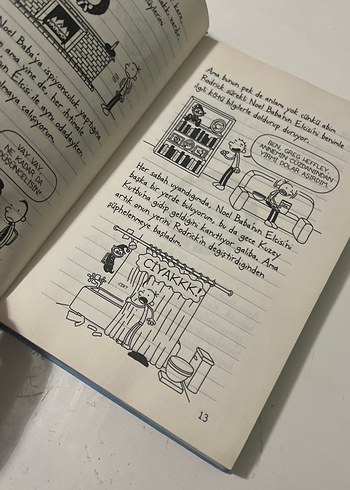 Noel Baba'ya ispiyonculuk yaptığına
ama yine de her ihtimale
Elcisi ile aynı odadayken
olmaya çalışıyorum.
VAY, VAY,
NE KADAR İYİ
Ama bunun pek de anlamı yok çünkü abim
Rodrick sürekli Noel Baba'nın Elcisi'ni benimle
ilgili kötü bilgilerle doldurup duruyor.
BEN, GREG HEFFLEY,
ANNEMİN CÜZDANINDAN
YİRMİ DOLAR AŞIRDIM.
Her sabah uyandığımda, Noel Baba'nın Elcisi'ni
başka bir yerde buluyorum, bu da gece Kuzey
Kutbu'na gidip geldiğini kanıtlıyor galiba. Ama
artık onun yerini Rodrick'in değiştirdiğinden
şüphelenmeye başladım.
CİYAKKK!
13